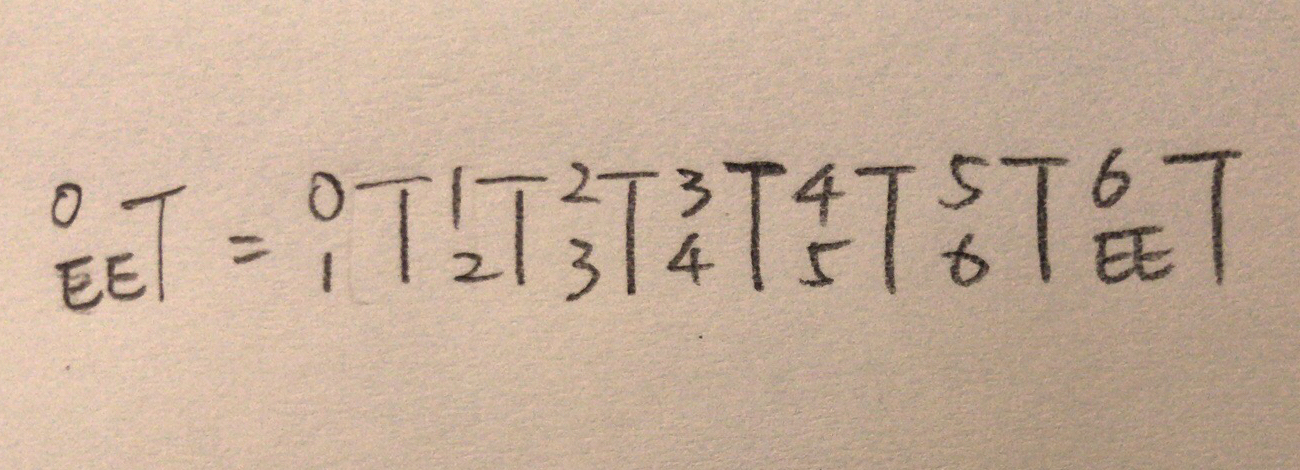 ⁰_EE T = ⁰_1 T ¹_2 T ²_3 T ³_4 T ⁴_5 T ⁵_6 T ⁶_EE T